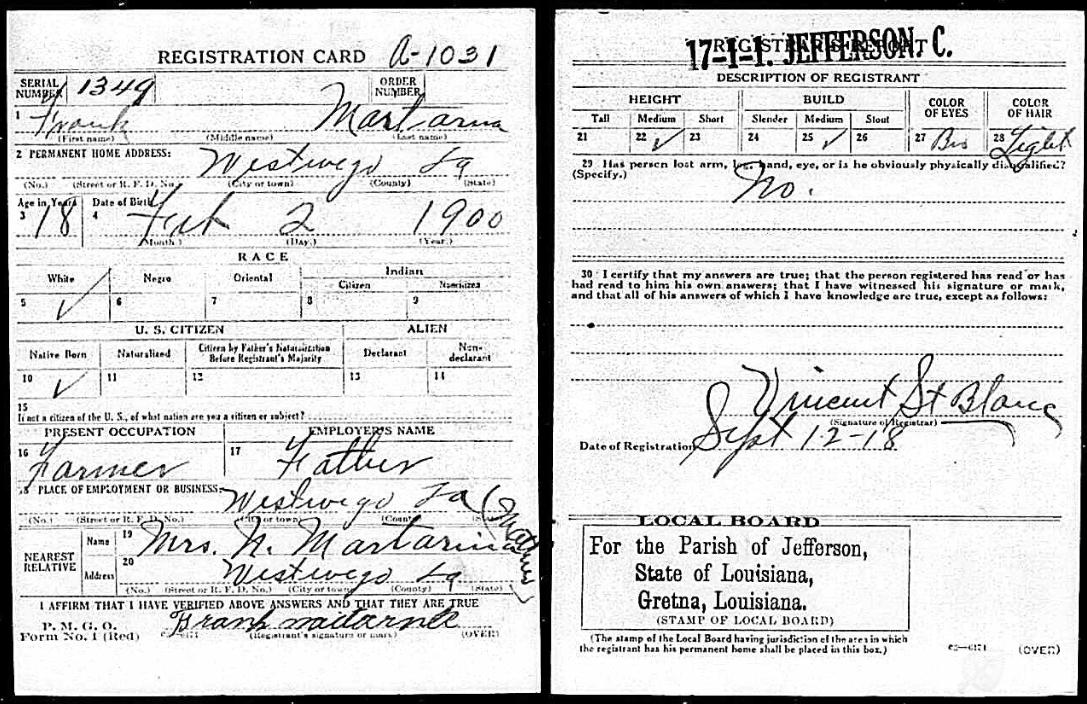 REGISTRATION CARD A-1031
SERIAL NUMBER 1349 ORDER NUMBER
1 Frank Martarna
(First name) (Middle name) (Last name)
2 PERMANENT HOME ADDRESS:
Westwego La
(No.) (Street or R. F. D. No.) (City or town) (County) (State)
Age in Years Date of Birth
3 18 4 Feb 2 1900
(Month.) (Day.) (Year.)
RACE
White Negro Oriental Indian
Citizen Noncitizen
5 ✓ 6 7 8 9
U. S. CITIZEN ALIEN
Native Born Naturalized Citizen by Father's Naturalization Before Registrant's Majority Declarant Non-declarant
10 ✓ 11 12 13 14
15
If not a citizen of the U. S., of what nation are you a citizen or subject?
PRESENT OCCUPATION EMPLOYER'S NAME
16 Farmer 17 Father
18 PLACE OF EMPLOYMENT OR BUSINESS:
Westwego La
(No.) (Street or R. F. D. No.) (City or town) (County) (State)
(Mother)
NEAREST RELATIVE
Name 19 Mrs. N. Martarina
Address 20 Westwego La
(No.) (Street or R. F. D. No.) (City or town) (County) (State)
I AFFIRM THAT I HAVE VERIFIED ABOVE ANSWERS AND THAT THEY ARE TRUE
P. M. G. O.
Form No. 1 (Red) (Registrant's signature or mark) (OVER)
REGISTRAR'S REPORT
17-1-1. JEFFERSON. C.
DESCRIPTION OF REGISTRANT
HEIGHT BUILD COLOR OF EYES COLOR OF HAIR
Tall Medium Short Slender Medium Stout
21 22 ✓ 23 24 25 ✓ 26 27 Bro 28 Light
29 Has person lost arm, leg, hand, eye, or is he obviously physically disqualified?
(Specify.) No.
30 I certify that my answers are true; that the person registered has read or has
had read to him his own answers; that I have witnessed his signature or mark,
and that all of his answers of which I have knowledge are true, except as follows:
Vincent St Blanc
(Signature of Registrar)
Date of Registration Sept 12-18
LOCAL BOARD
For the Parish of Jefferson,
State of Louisiana,
Gretna, Louisiana.
(STAMP OF LOCAL BOARD)
(The stamp of the Local Board having jurisdiction of the area in which
the registrant has his permanent home shall be placed in this box.)
(OVER)